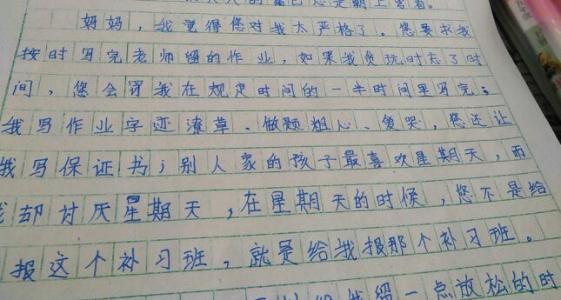 妈妈，我觉得您对我太严格了。您要求我
按时写完老师留的作业，如果我贪玩时丢了时
间，您会罚我在规定时间的一半时间里写完；
我写作业字迹潦草、做题粗心、爱哭，您还让
我写保证书；别人家的孩子最喜欢星期天，而
我却讨厌星期天，在星期天的时候，您不是给
报这个补习班，就是给我报那个补习班。
一点放松的时